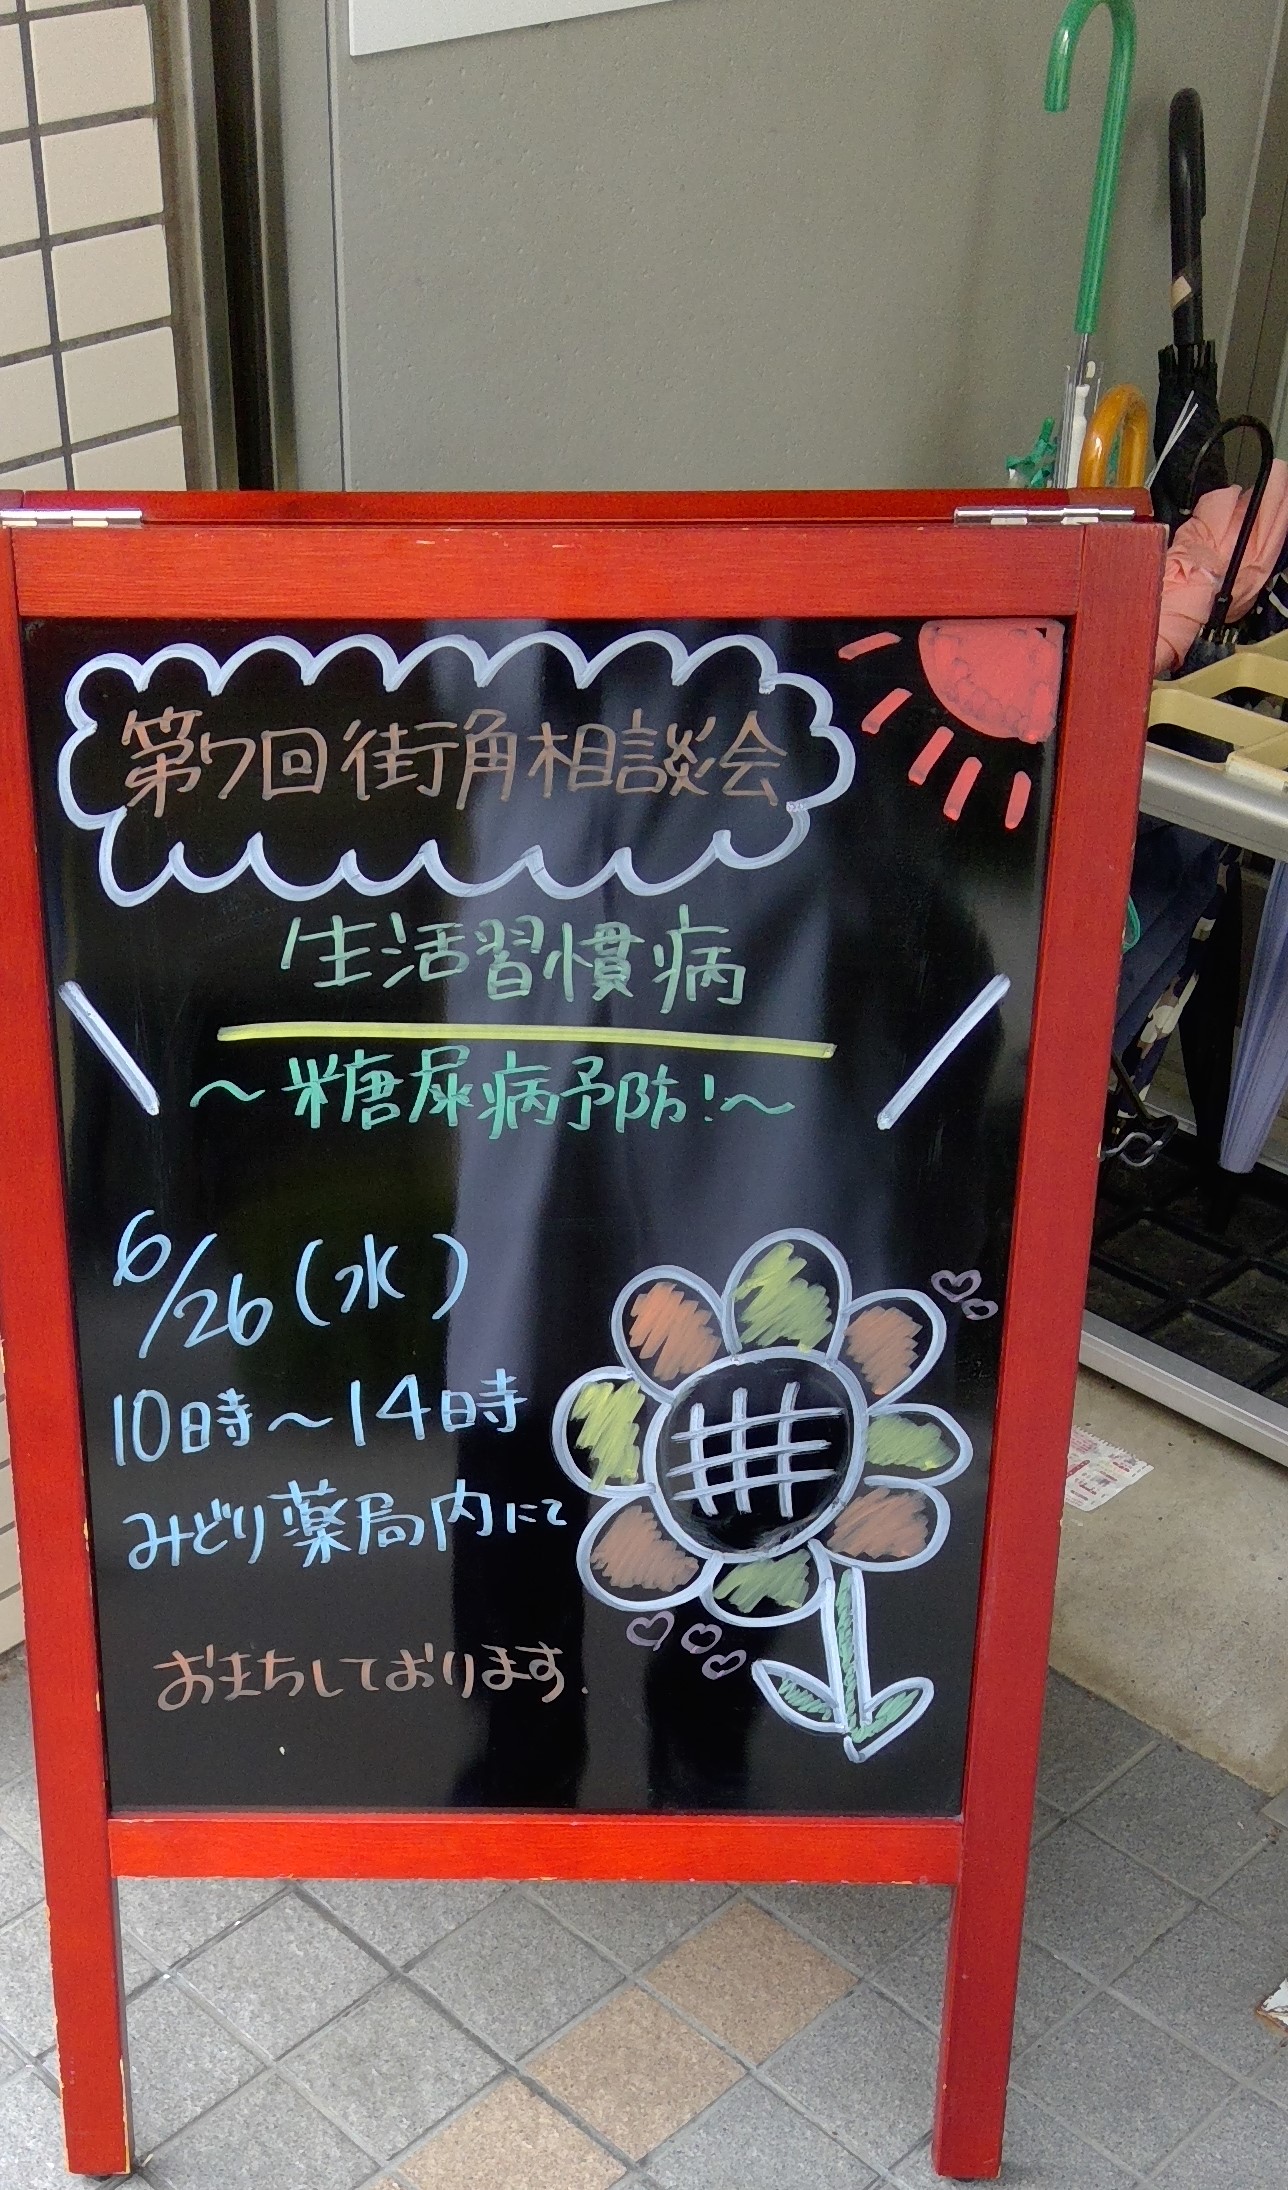 第7回街角相談会
生活習慣病
～糖尿病予防!～
6/26(水)
10時～14時
みどり薬局内にて
おまちしております.